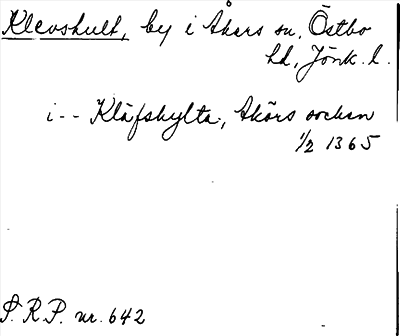 Klevshult, by i Åkers sn, Östbo
hd, Jönk. l.
i -- Kläfshylta, Akårs sochen
1/2 1365
S.R.P. nr. 642